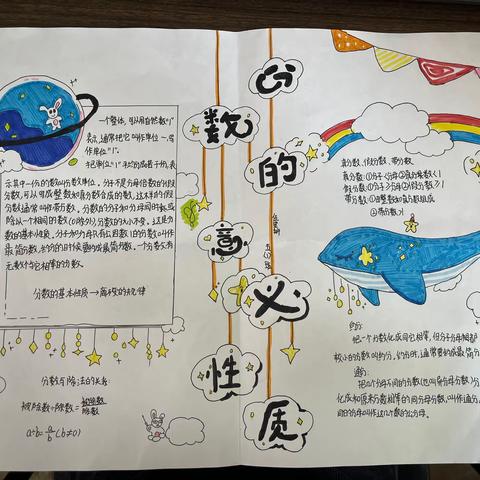 分数的意义和性质
一个整体,可以用自然数"1"
表示,通常把它叫作单位一.写
作单位"1".
把单位"1"平均分成若干份,表
示其中一份的数叫分数单位。分子不是分母倍数的假
分数,可以写成整数和真分数合成的数,这样的假
分数通常叫作带分数。分数的分子和分母同时乘或
除以一个相同的数(0除外),分数的大小不变。这是分
数的基本性质。分子和分母只有公因数1的分数叫作
最简分数,
无数个与它相等的分数。
分数的基本性质→商不变的规律
分数与除法的关系
被除数÷除数=被除数/除数
a÷b=a/b(b≠0)
真分数、假分数、带分数
真分数:①分子<分母②真分数<1
假分数:①分子≥分母②假分数≥1
带分数:①整数和真分数组成
②带分数>1
约分:
把一个分数化成同它相等,但分子分母都
较小的分数叫约分。约分时,通常要约成最简分
通分:
把几个分母不同的分数(也叫异分母分数)分
化成和原来分数相等的同分母分数,叫作通分,
同的分母叫作这几个数的公分母。